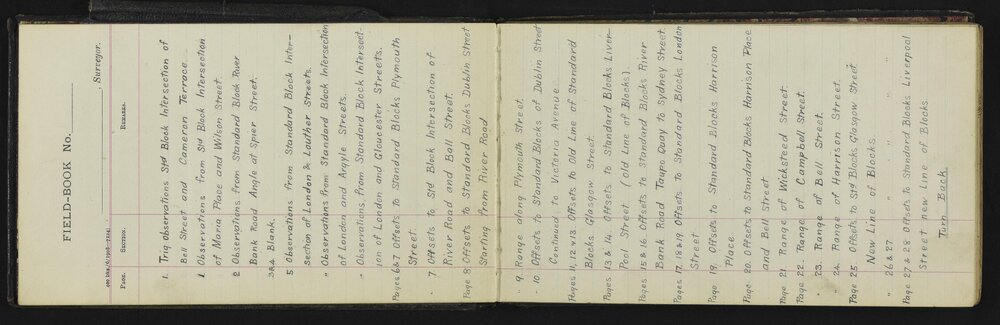 FIELD-BOOK No.
, Surveyor.
PAGE. SECTION. REMARKS.
1. Trig Observations Std Block Intersection of
Bell Street and Cameron Terrace.
1 Observations from Std Block Intersection
of Maria Place and Wilson Street.
2 Observations from Standard Block River
Bank Road Angle at Spier Street.
3&4 Blank.
5 Observations from Standard Block Inter-
section of London & Louther Streets.
" Observations from Standard Block Intersection
of London and Argyle Streets.
" Observations from Standard Block Intersect-
ion of London and Gloucester Streets.
Pages 6&7 Offsets to Standard Blocks Plymouth
Street.
" 7 Offsets to Std Block Intersection of
River Road and Ball Street.
Page 8 Offsets to Standard Blocks Dublin Street
Starting from River Road
" 9. Range along Plymouth Street.
" 10 Offsets to Standard Blocks of Dublin Street
Continued to Victoria Avenue
Pages 11, 12 & 13. Offsets to Old Line of Standard
Blocks Glasgow Street.
Pages 13 & 14. Offsets to Standard Blocks Liver-
Pool Street (old Line of Blocks).
Pages 15 & 16 Offsets to Standard Blocks River
Bank Road Taupo Quay to Sydney Street.
Pages 17, 18 & 19 Offsets to Standard Blocks London
Street
Page 19. Offsets to Standard Blocks Harrison
Place
Page 20. Offsets to Standard Blocks Harrison Place
and Bell Street
Page 21. Range of Wicksteed Street.
Page 22. Range of Campbell Street.
" 23. Range of Bell Street.
" 24. Range of Harrison Street.
Page 25 Offsets to Std Blocks Glasgow Street
New Line of Blocks
" 26 & 27 " " "
Page 27 & 28 Offsets to Standard Blocks Liverpool
Street new Line of Blocks
Turn Back